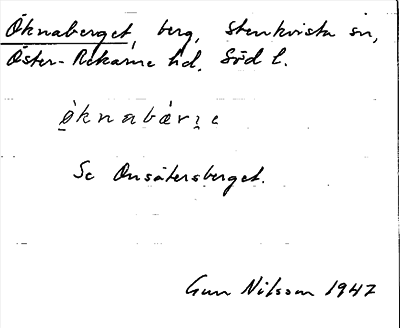 Öknaberget, berg, Stenkvista sn,
Öster-Rekarne hd. Södl.
ø̀knabær̨ɛ
Se Onsätersberget.
Gun Nilsson 1947